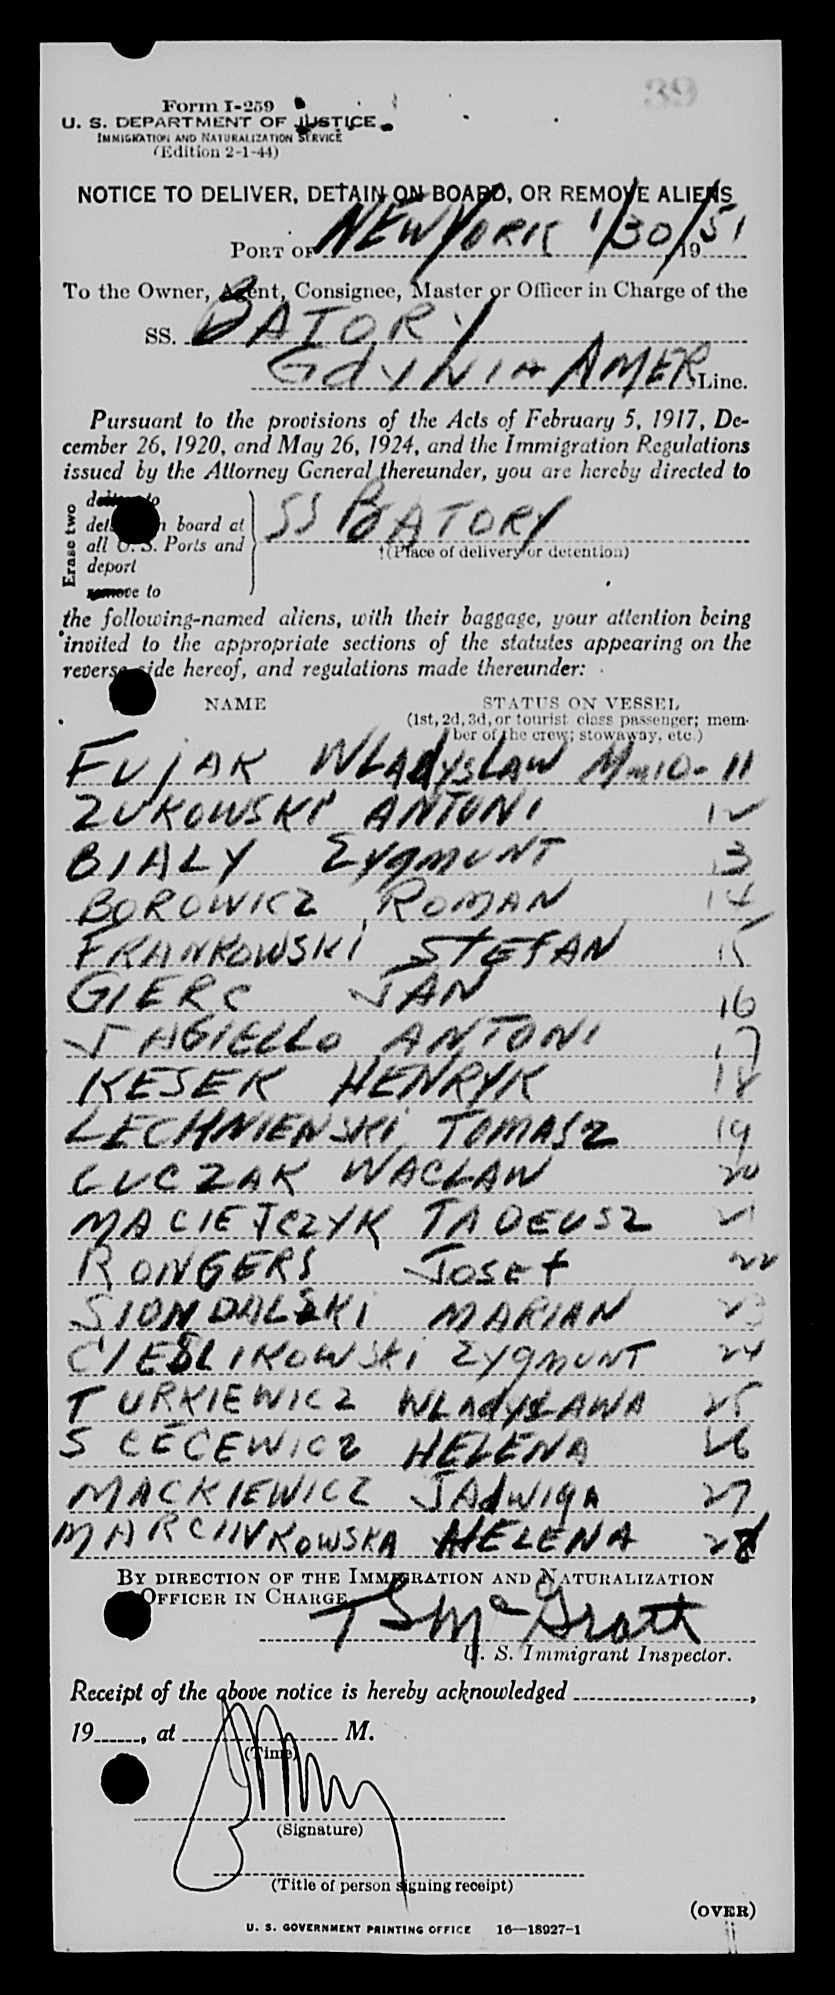 39
Form I-259
U. S. DEPARTMENT OF JUSTICE
IMMIGRATION AND NATURALIZATION SERVICE
(Edition 2-1-44)
NOTICE TO DELIVER, DETAIN ON BOARD, OR REMOVE ALIENS
PORT OF NEW YORK 1/30/1951
To the Owner, Agent, Consignee, Master or Officer in Charge of the
SS. BATORY
GDYNIA AMER Line.
Pursuant to the provisions of the Acts of February 5, 1917, De-
cember 26, 1920, and May 26, 1924, and the Immigration Regulations
issued by the Attorney General thereunder, you are hereby directed to
Erase two
to
board at
all U. S. Ports and
deport
remove to
SS BATORY
†(Place of delivery or detention)
the following-named aliens, with their baggage, your attention being
invited to the appropriate sections of the statutes appearing on the
reverse side hereof, and regulations made thereunder:
NAME STATUS ON VESSEL
(1st, 2d, 3d, or tourist class passenger; mem-
ber of the crew; stowaway, etc.)
FUJAK WLADYSLAW 11
ZUKOWSKI ANTONI 12
BIALY ZYGMUNT 13
BOROWICZ ROMAN 14
FRANKOWSKI STEFAN 15
GIERC JAN 16
JAGIELLO ANTONI 17
KESEK HENRYK 18
LECHNIENSKI TOMASZ 19
LUCZAK WACLAW 20
MACIEJCZYK TADEUSZ 21
RONGERS JOSEF 22
SIONDALSKI MARIAN 23
CIESLIKOWSKI ZYGMUNT 24
TURKIEWICZ WLADYSLAWA 25
SCECEWICZ HELENA 26
MACKIEWICZ JADWIGA 27
MARCINKOWSKA HELENA 28
BY DIRECTION OF THE IMMIGRATION AND NATURALIZATION
OFFICER IN CHARGE
T S McGrath
U. S. Immigrant Inspector.
Receipt of the above notice is hereby acknowledged ,
19 , at M.
(Time)
(Signature)
(Title of person signing receipt)
(OVER)
U. S. GOVERNMENT PRINTING OFFICE 16—18927-1